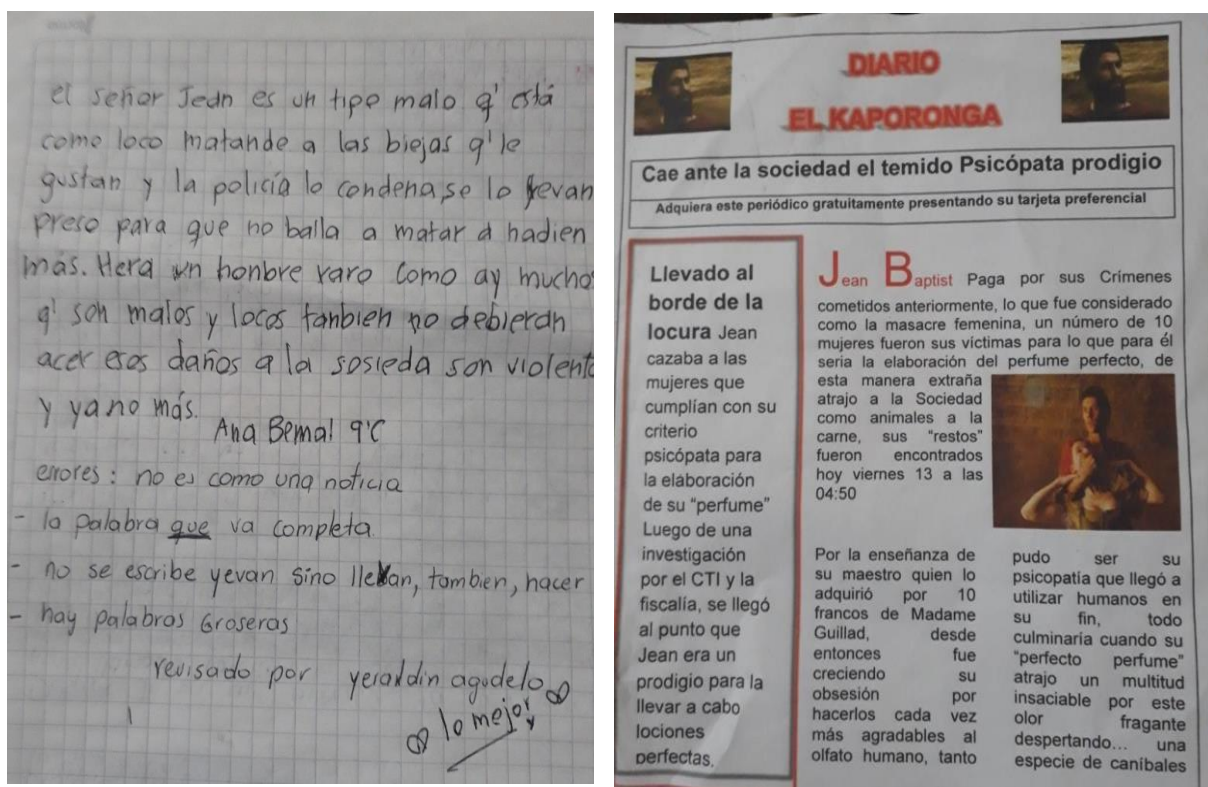 el señor Jean es un tipo malo q' está
como loco matando a las biejas q' le
gustan y la policía lo condena se lo yevan
preso para que no balla a matar a nadien
más. Hera un honbre raro como ay mucho
q' son malos y locos tanbien no debieran
acer esos daños a la sosieda son violento
y ya no más.
Ana Bernal 9°C
errores: no es como una noticia
- la palabra que va completa.
- no se escribe yevan sino llevan, tambien, hacer
- hay palabras Groseras
revisado por yeraldin agudelo
lo mejor
DIARIO
EL KAPORONGA
Cae ante la sociedad el temido Psicópata prodigio
Adquiera este periódico gratuitamente presentando su tarjeta preferencial
Llevado al
borde de la
locura Jean
cazaba a las
mujeres que
cumplían con su
criterio
psicópata para
la elaboración
de su "perfume"
Luego de una
investigación
por el CTI y la
fiscalía, se llegó
al punto que
Jean era un
prodigio para la
llevar a cabo
lociones
perfectas.
Jean Baptist Paga por sus Crímenes
cometidos anteriormente, lo que fue considerado
como la masacre femenina, un número de 10
mujeres fueron sus victimas para lo que para él
seria la elaboración del perfume perfecto, de
esta manera extraña
atrajo a la Sociedad
como animales a la
carne, sus "restos"
fueron encontrados
hoy viernes 13 a las
04:50
Por la enseñanza de
su maestro quien lo
adquirió por 10
francos de Madame
Guillad, desde
entonces fue
creciendo su
obsesión por
hacerlos cada vez
más agradables al
olfato humano, tanto
pudo ser su
psicopatía que llegó a
utilizar humanos en
su fin, todo
culminaría cuando su
"perfecto perfume"
atrajo un multitud
insaciable por este
olor fragante
despertando... una
especie de caníbales